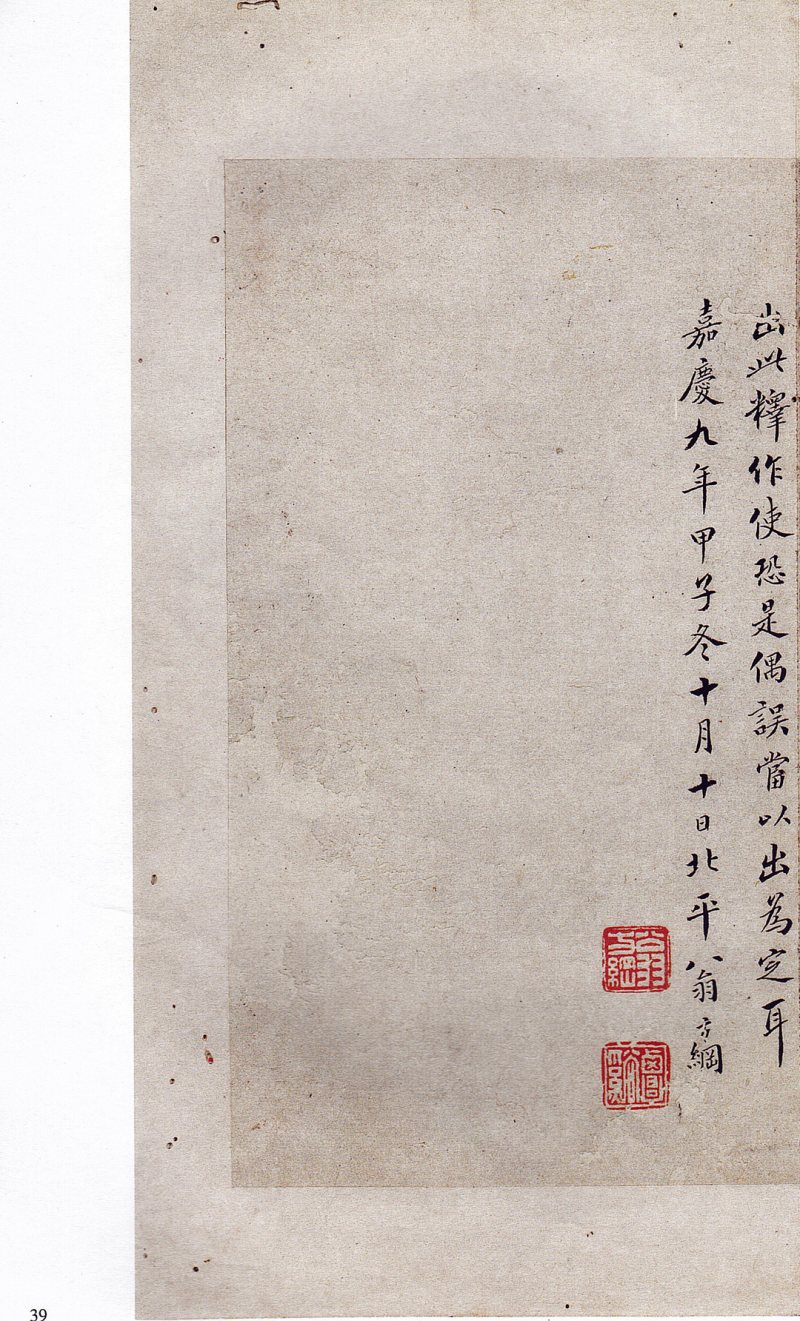 出此釋作使恐是偶誤當以出為定耳
嘉慶九年甲子冬十月十日北平翁方綱
翁方綱
覃谿
39